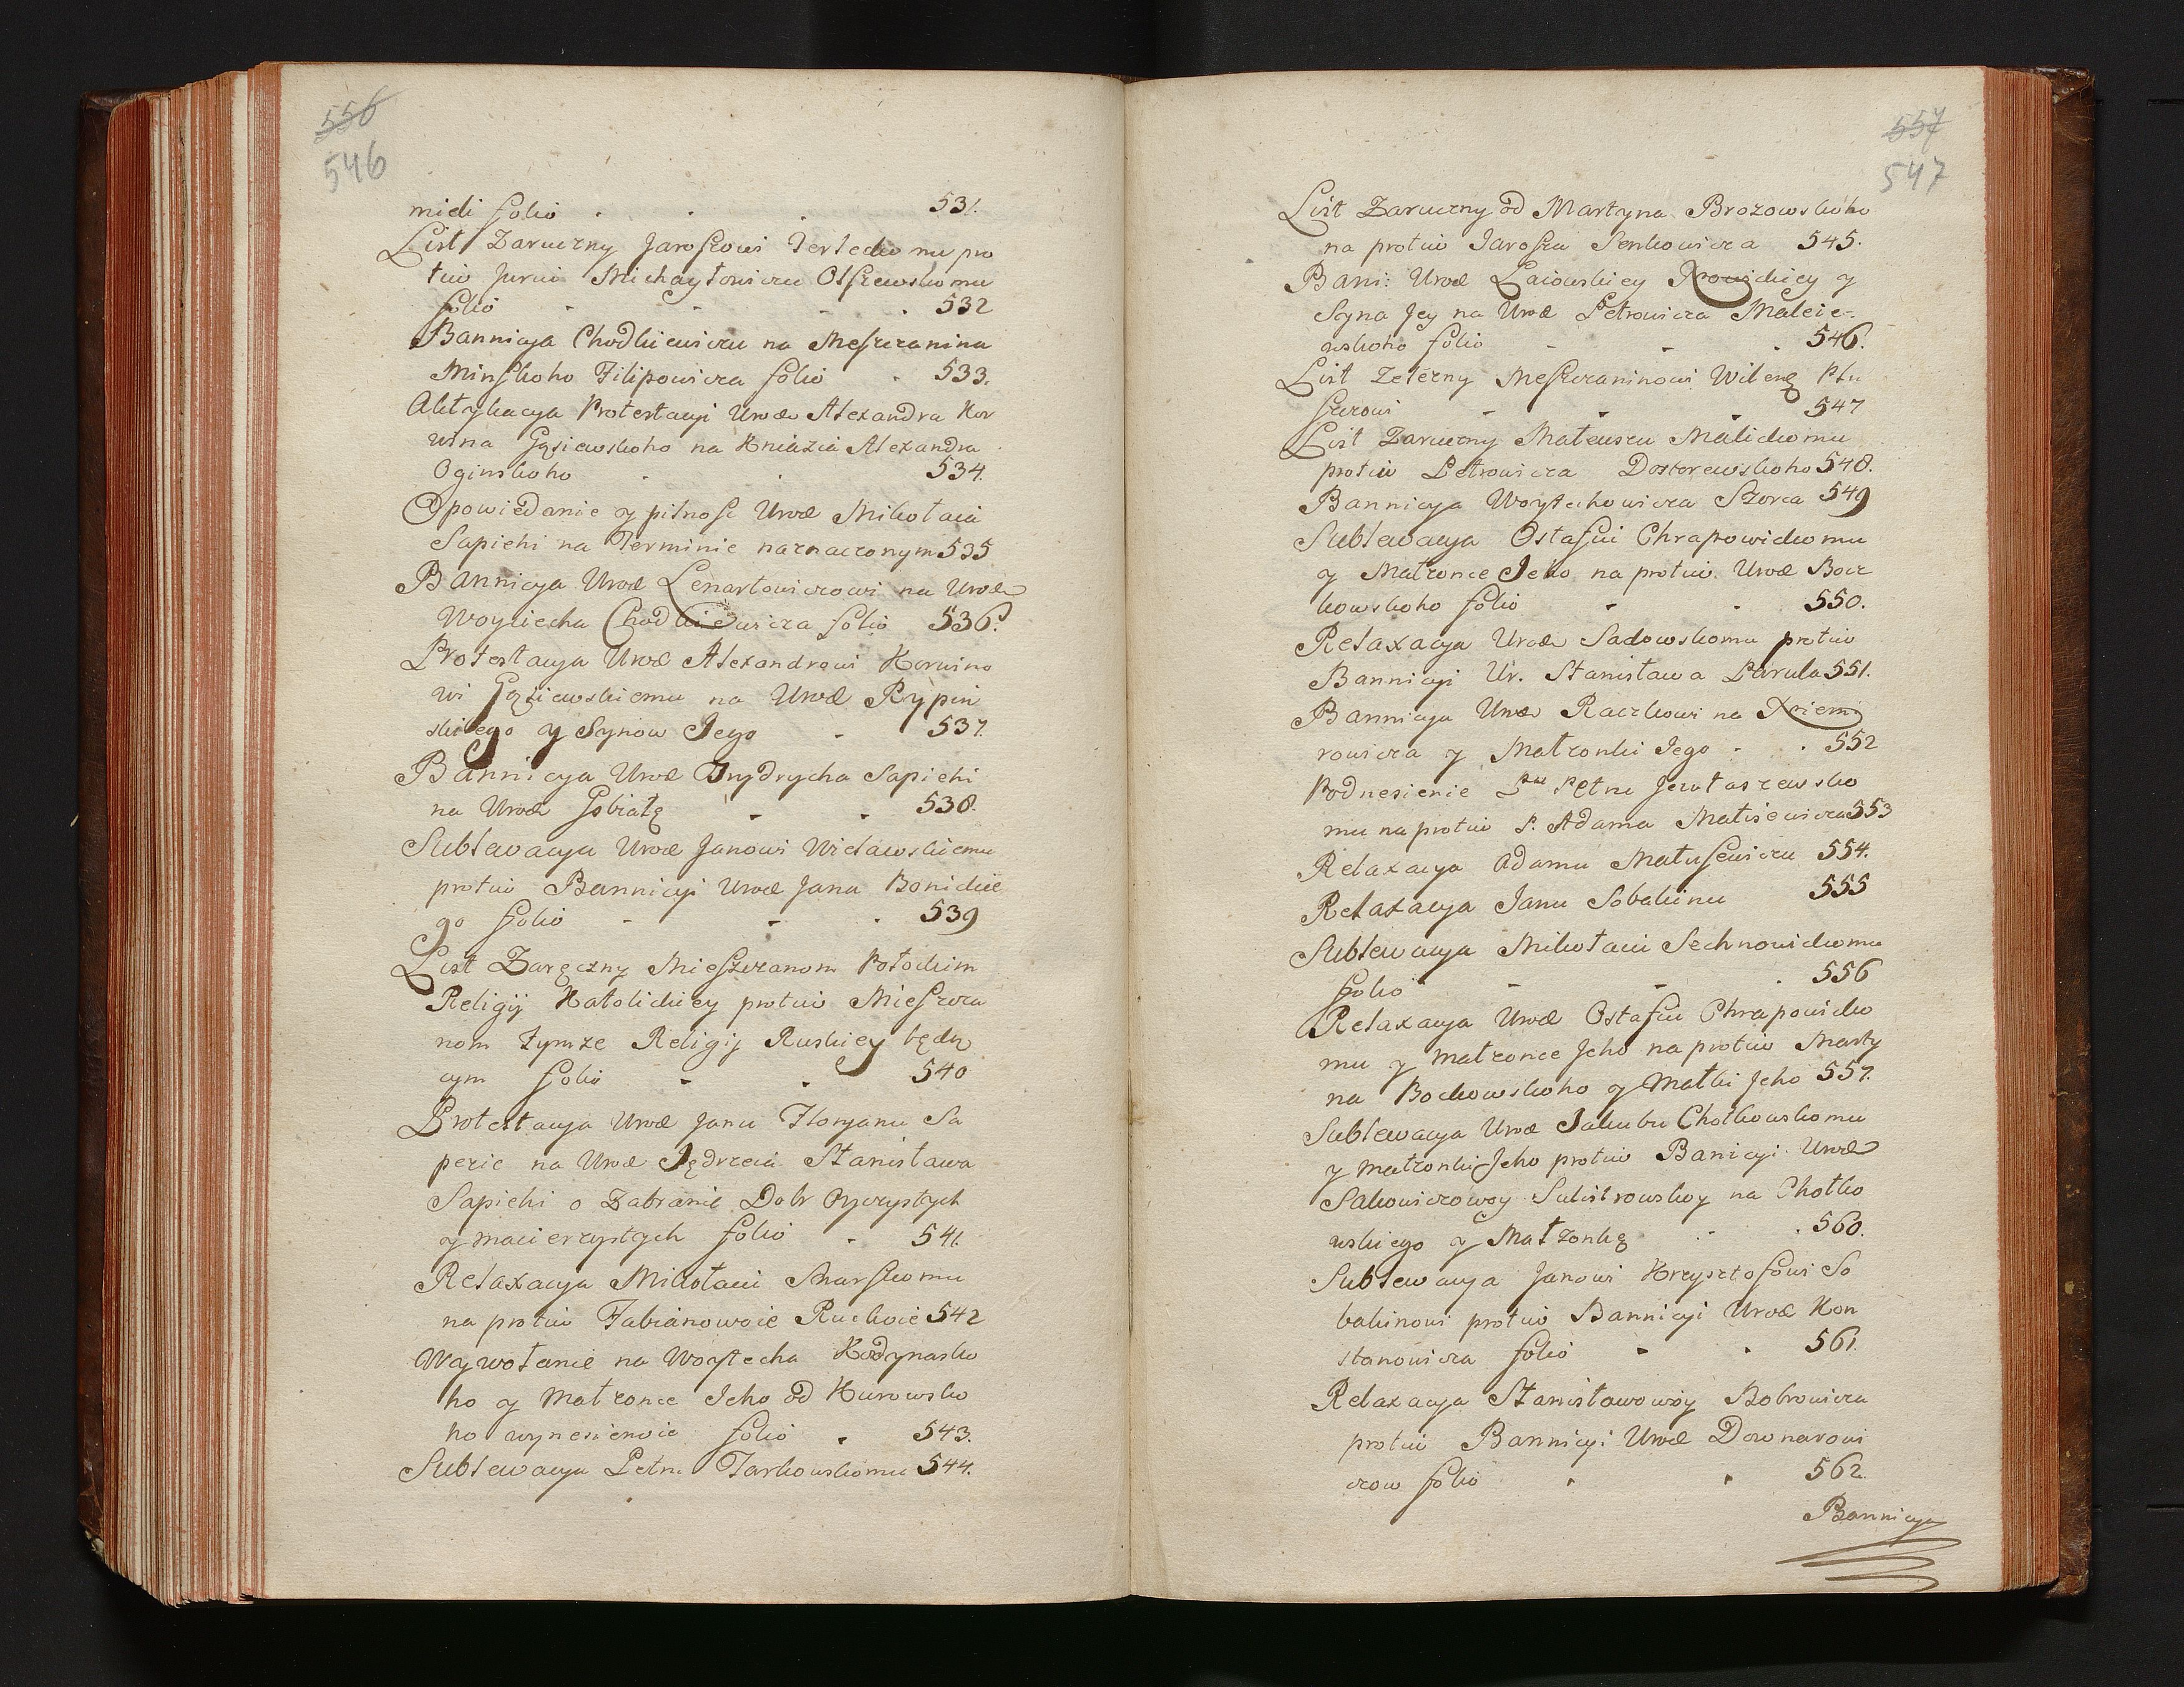 556
546
midi folio 531.
List Zaruczny Jaroszowi Terleckomu pro
tiw Jurui Michayłowiczu Olszewskomu
folio 532
Bannicya Chodkiewiczu na Meszczanina
Minskoho Filipowicza folio 533.
Aktykacya Protestacyi Urodz Alexandra Kor
wina Gąsiewskoho na Kniazia Alexandra
Oginskoho 534.
Opowiedanie y pilność Urodz Mikołaia
Sapiehi na Terminie naznaczonym 535
Bannicya Urodz Lenartowiczowi na Urodz
Woyciecha Chodkiewicza folio 536.
Protestacya Urodz Alexandrowi Korwino
wi Gąsiewskiemu na Urodz Rypin
skiego y Synow Jego 537.
Bannicya Urodz Frydrycha Sapiehi
na Urodz Gobiatę 538.
Sublewacya Urodz Janowi Wicławskiemu
protiw Bannicyi Urodz Jana Bonickie
go folio 539
List Zaręczny Mieszczanom Połockim
Religij Katolickiey protiw Mieszcza
nom tymże Religij Ruskiey będą
cym folio 540
Protestacya Urodz Janu Floryanu Sa
pezie na Urodz Jędrzeia Stanisława
Sapiehi o Zabranie Dobr Oyczystych
y macierzystych folio 541.
Relaxacya Mikołaiu Skarszomu
na protiw Fabianowoie Ruckoie 542
Wywołanie na Woytecha Kodynasko
ho y Małzonce Jeho od Kurowsko
ho wynesienoie folio 543.
Sublewacya Petru Tarkowskomu 544.
557
547
List Zaruczny od Martyna Brozowskoho
na protiw Jarosza Senkowicza 545.
Bani: Urodz Laiowskiey y
Syna Jey na Urodz Petrowicza Maleie-
wskoho folio 546.
List Zelézny Meszczaninowi Wilenꝫ Ptu
szczowi 547
List Zaruczny Mateuszu Malickomu
protiw Petrowicza Dostorewskoho 548.
Bannicya Woytechowicza Szorca 549
Sublewacya Ostafiu Chrapowickomu
y Małzonce Jeho na protiw Urodz Bocz
kowskoho folio 550.
Relaxacya Urodz Sadowskomu protiw
Bannicyi Ur. Stanisława Parula 551.
Bannicya Urodz Raczkowi na Xziem
rowicza y Małzonki Jego 552
Podnesienie Petru Jewłaszewsko
mu na protiw P. Adama Matisewicza 553
Relaxacya Adamu Matusewiczu 554.
Relaxacya Janu Sobakinu 555
Sublewacya Mikołaiu Sechnowickomu
folio 556
Relaxacya Urodz Ostafiu Chrapowicko
mu y małzonce Jeho na protiw Marty
na Bockowskoho y Matki Jeho 557.
Sublewacya Urodz Jakubu Chotkowskomu
y małzonki Jeho protiw Banicyi Urodz
Sakowiczowoy Sulistrowskoy na Chotko
wskiego y Małzonkę 560.
Sublewacya Janowi Krzysztofowi So
bakinowi protiw Bannicyi Urodz Kon
stanowicza folio 561.
Relaxacya Stanisławowoy Bobrowicza
protiw Bannicyi Urodz Downarowi
czow folio 562.
Bannicya